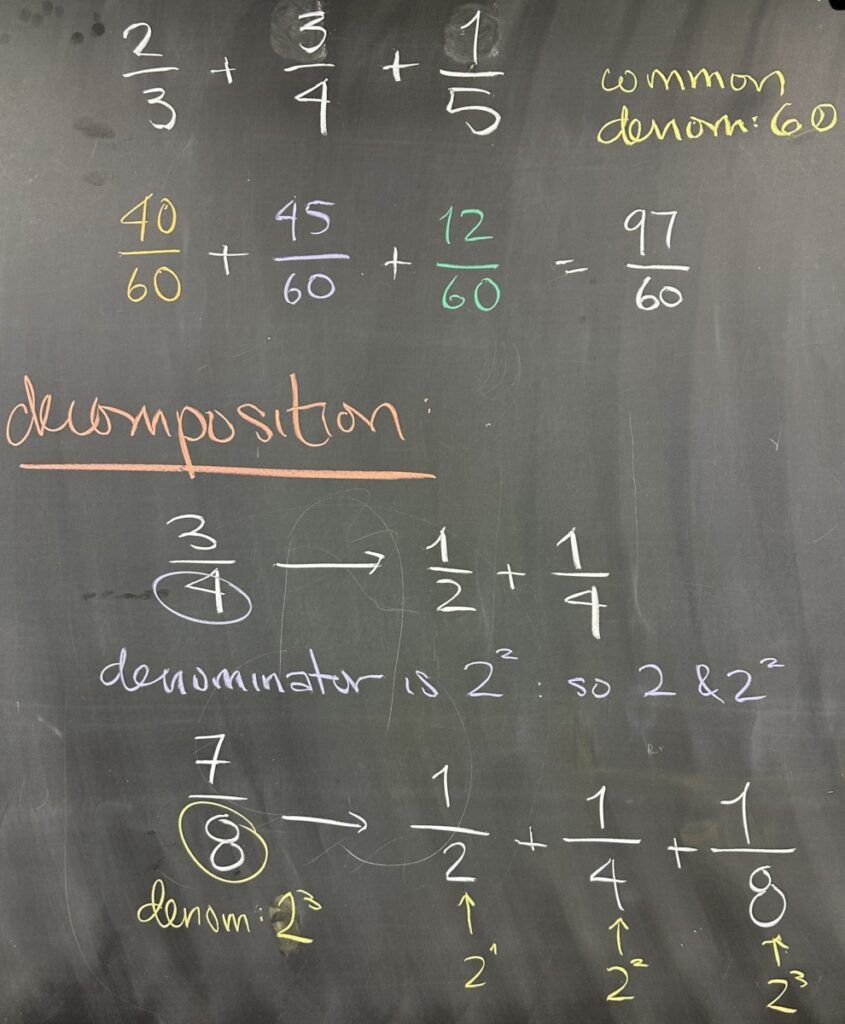 2/3 + 3/4 + 1/5
common
denom: 60
40/60 + 45/60 + 12/60 = 97/60
decomposition:
3/4 → 1/2 + 1/4
denominator is 2² : so 2 & 2²
7/8 → 1/2 + 1/4 + 1/8
denom: 2³
↑ ↑ ↑
2¹ 2² 2³